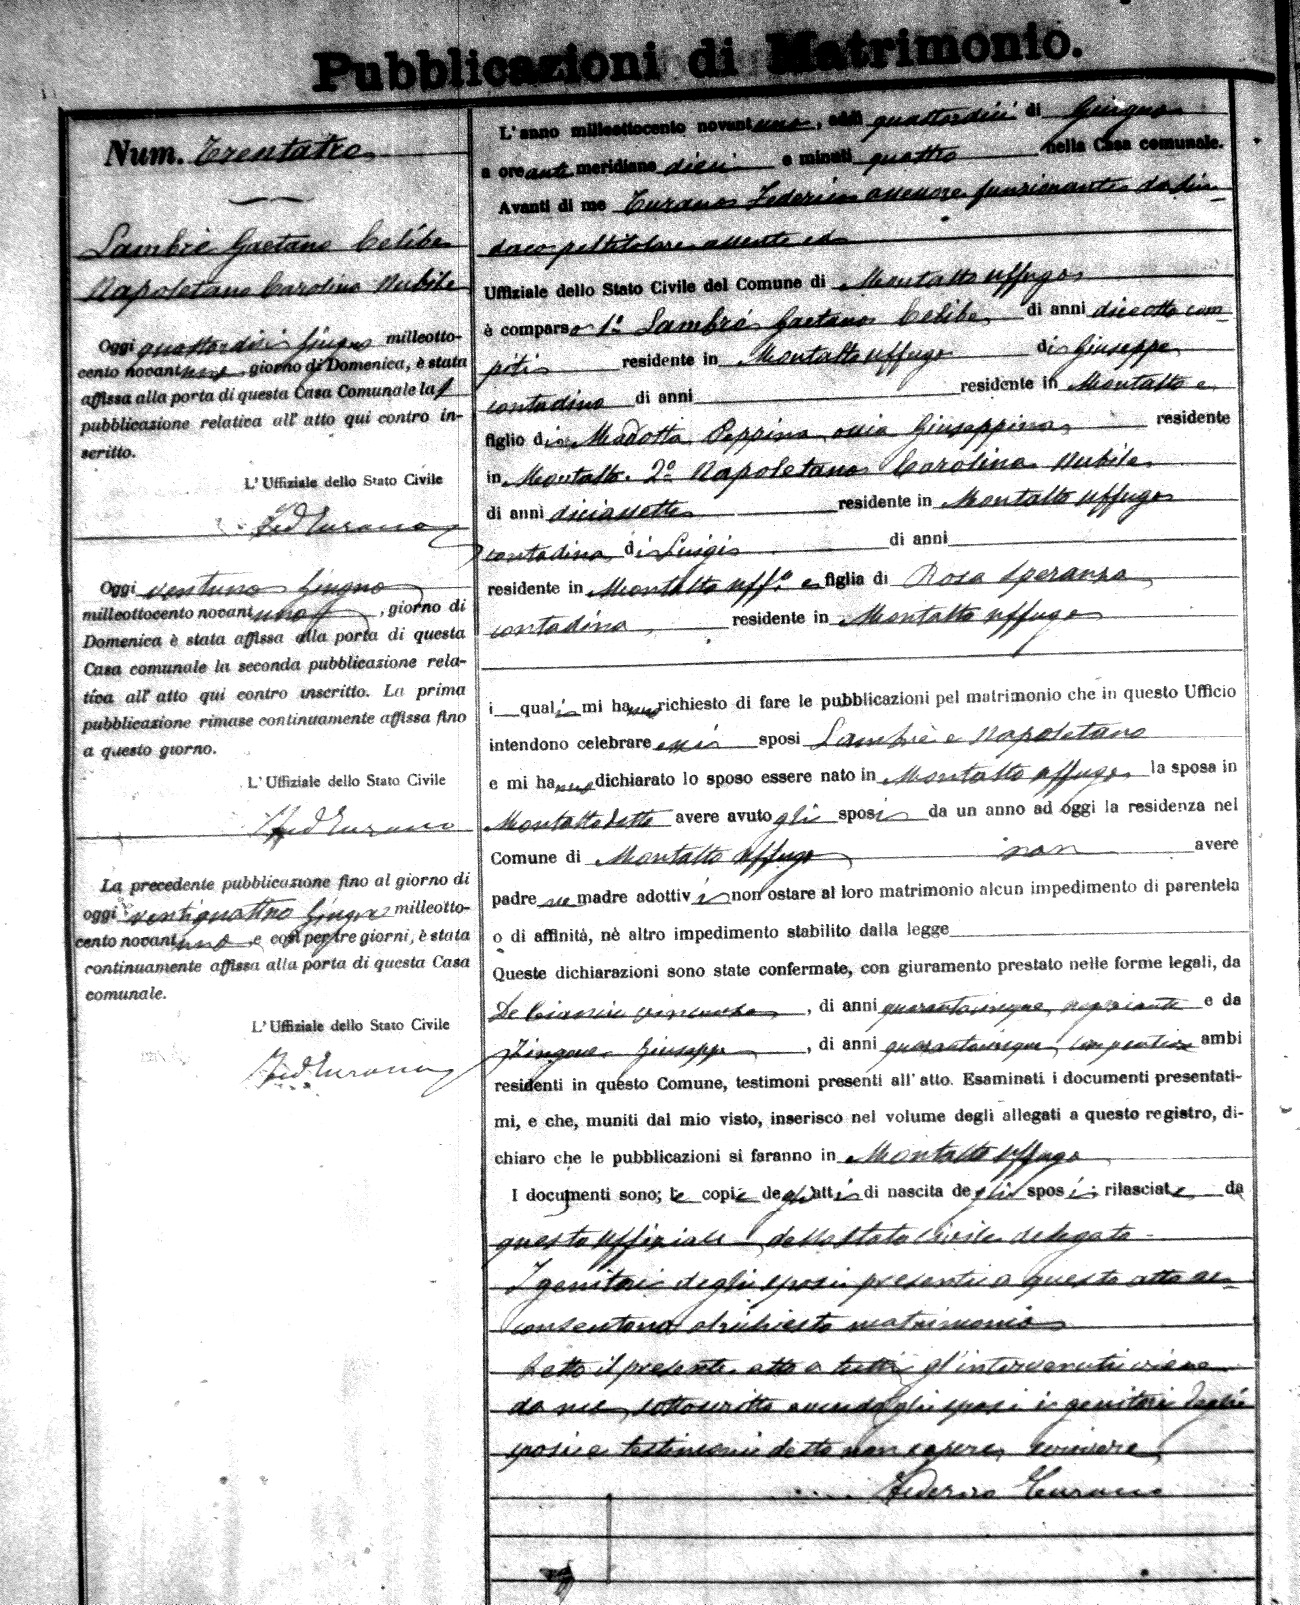 Pubblicazioni di Matrimonio.
Num. Trentatre
Lambrè Gaetano Celibe
Napoletano Carolina Nubile
Oggi quattordici Giugno milleotto-
cento novantuno giorno di Domenica, è stata
affissa alla porta di questa Casa Comunale la 1
pubblicazione relativa all' atto qui contro in-
scritto.
L' Uffiziale dello Stato Civile
Fed Turano
Oggi ventuno Giugno
milleottocento novantuno, giorno di
Domenica è stata affissa alla porta di questa
Casa comunale la seconda pubblicazione rela-
tiva all' atto qui contro inscritto. La prima
pubblicazione rimase continuamente affissa fino
a questo giorno.
L' Uffiziale dello Stato Civile
Fed Turano
La precedente pubblicazione fino al giorno di
oggi ventiquattro Giugno milleotto-
cento novantuno e così per tre giorni, è stata
continuamente affissa alla porta di questa Casa
comunale.
L' Uffiziale dello Stato Civile
Fed Turano
L' anno milleottocento novantuno, addì quattordici di Giugno
a ore anti meridiane dieci e minuti quattro nella Casa comunale.
Avanti di me Turano Federico assessore funzionante da Sin-
daco pel titolare assente ed
Uffiziale dello Stato Civile del Comune di Montalto Uffugo
è comparso 1° Lambrè Gaetano Celibe di anni diciotto com-
piti residente in Montalto Uffugo di Giuseppe
contadino di anni residente in Montalto e
figlio di Madotta Peppina ossia Giuseppina residente
in Montalto. 2° Napoletano Carolina Nubile
di anni diciassette residente in Montalto Uffugo
contadina di Luigi di anni
residente in Montalto Uff.° e figlia di Rosa Speranza
contadina residente in Montalto Uffugo
i quali mi hanno richiesto di fare le pubblicazioni pel matrimonio che in questo Ufficio
intendono celebrare essi sposi Lambrè e Napoletano
e mi hanno dichiarato lo sposo essere nato in Montalto Uffugo la sposa in
Montalto detto avere avuto gli sposi da un anno ad oggi la residenza nel
Comune di Montalto Uffugo non avere
padre ne madre adottivi non ostare al loro matrimonio alcun impedimento di parentela
o di affinità, nè altro impedimento stabilito dalla legge
Queste dichiarazioni sono state confermate, con giuramento prestato nelle forme legali, da
De di anni quarantacinque negoziante e da
Giuseppe, di anni quarantacinque ambi
residenti in questo Comune, testimoni presenti all' atto. Esaminati i documenti presentati-
mi, e che, muniti dal mio visto, inserisco nel volume degli allegati a questo registro, di-
chiaro che le pubblicazioni si faranno in Montalto Uffugo
I documenti sono; le copie degli atti di nascita degli sposi; rilasciate da
questo Uffiziale dello Stato Civile delegato.
I genitori degli sposi presenti a questo atto ac-
consentono al richiesto matrimonio
Letto il presente atto a tutti gl'intervenuti viene
da me sottoscritto avendo gli sposi i genitori degli
sposi e testimoni detto non sapere scrivere
Federico Turano